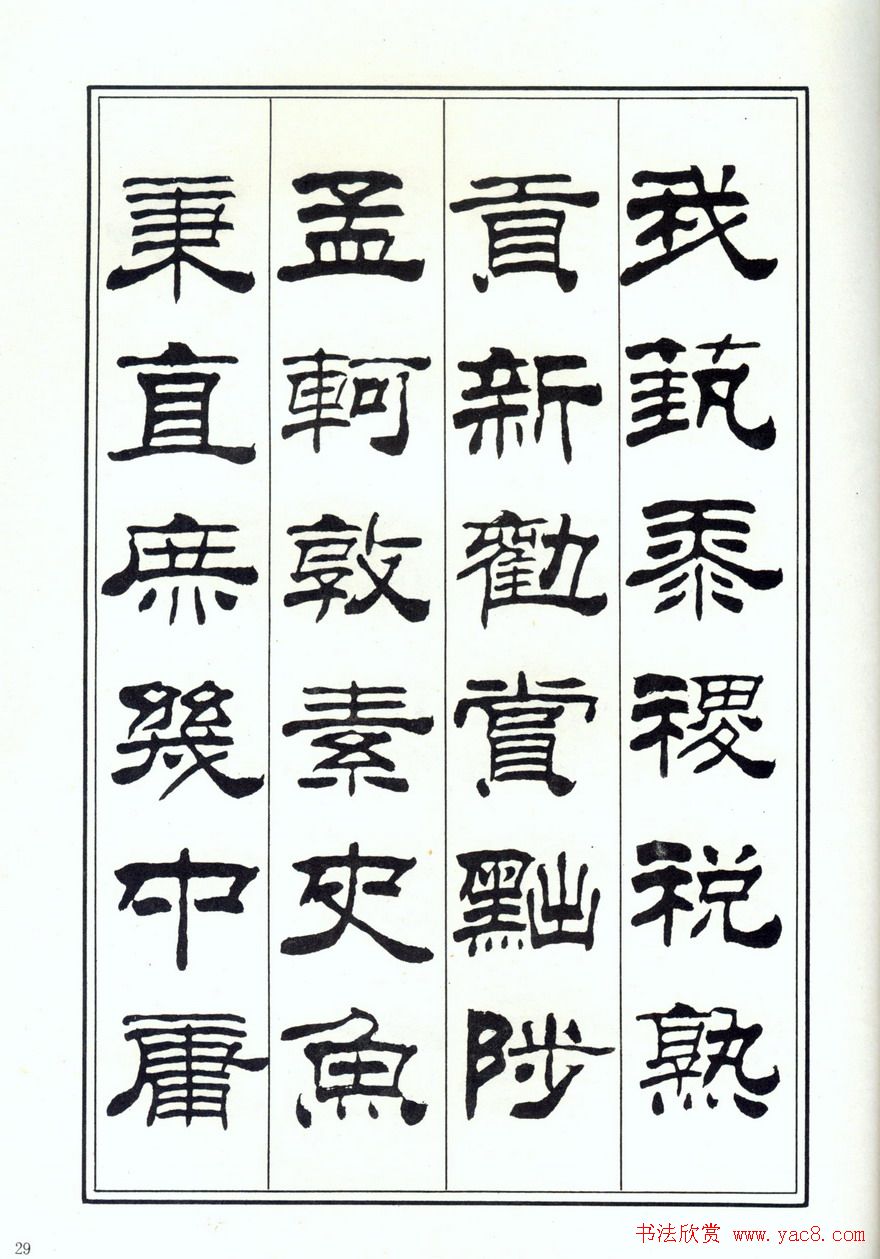 我藝黍稷稅熟
貢新勸賞黜陟
孟軻敦素史魚
秉直庶幾中庸
29
书法欣赏 www.yac8.com